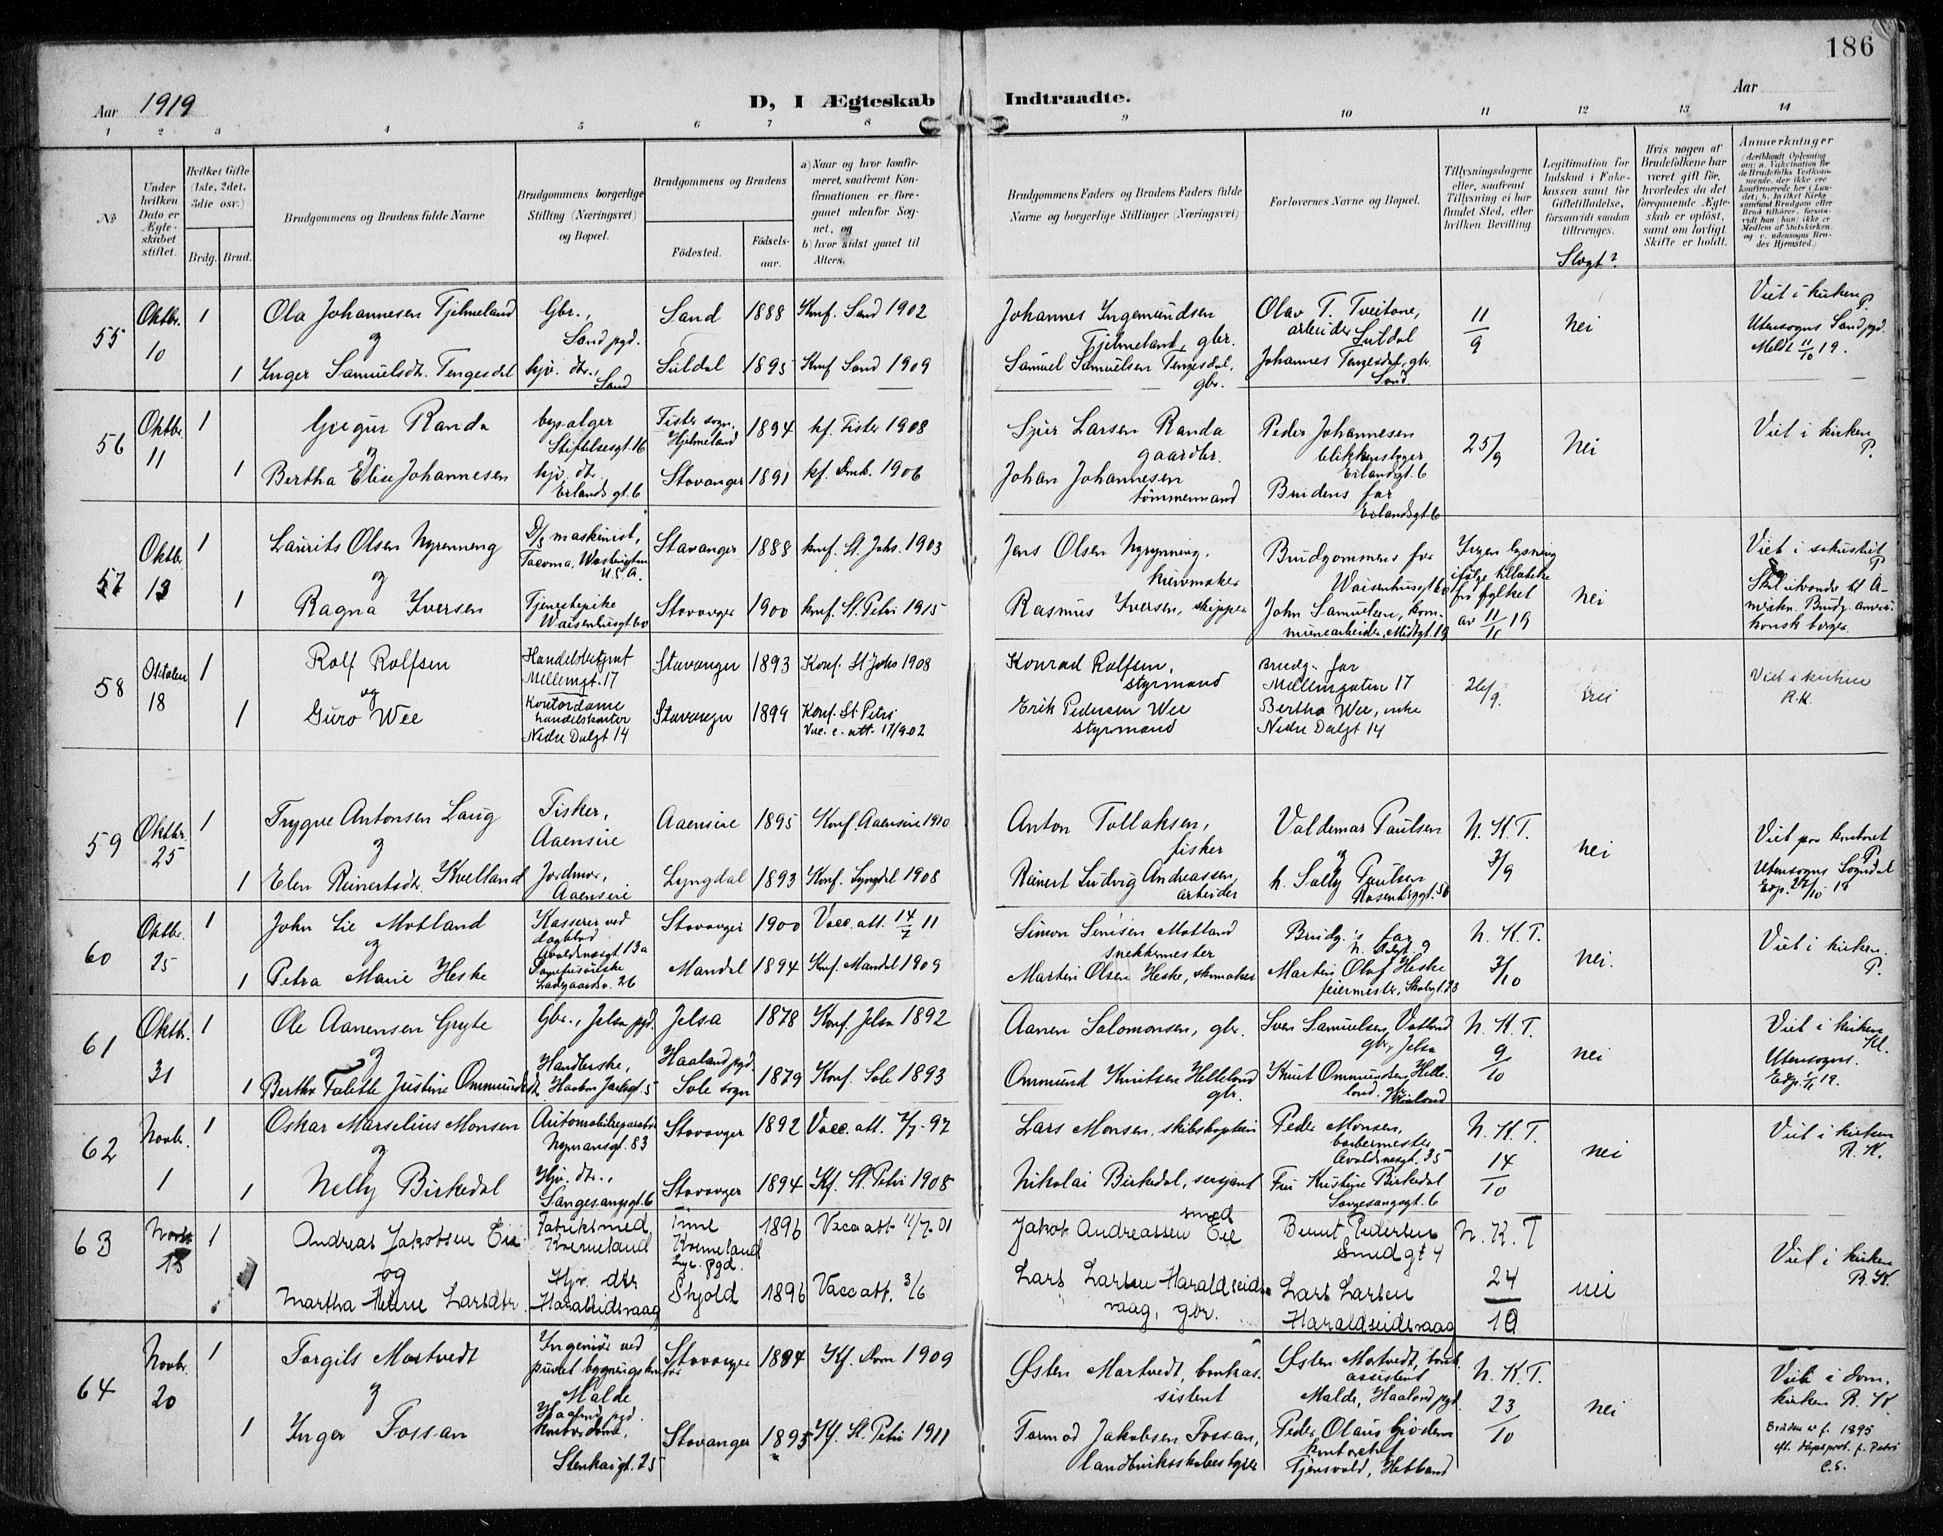 186
Aar 1919
D, I Ægteskab Indtraadte.
Aar
1 2 3 4 5 6 7 8 9 10 11 12 13 14
No
Under hvilken Dato er Ægteskabet stiftet.
Hvilket Gifte (1ste, 2det, 3die osv.)
Brdg. Brud.
Brudgommens og Brudens fulde Navne
Brudgommens borgerlige Stilling (Næringsvei) og Bopæl.
Brudgommens og Brudens
Fødested.
Fødselsaar.
a) Naar og hvor konfirmeret, saafremt Konfirmationen er foregaaet udenfor Sognet, og
b) hvor sidst gaaet til Alters.
Brudgommens Faders og Brudens Faders fulde Navne og borgerlige Stillinger (Næringsvei)
Forlovernes Navne og Bopæl.
Tillysningsdagene eller, saafremt Tillysning ei har fundet Sted, efter hvilken Bevilling.
Legitimation for Indskud i Enkekassen samt for Giftetilladelse, forsaavidt saadan tiltrænges.
Slegt?
Hvis nogen af Brudefolkene har været gift før, hvorledes da det foregaaende Ægteskab er opløst, samt om lovligt Skifte er holdt.
Anmerkninger
55 Oktbr. 10 1 Ola Johannesen Tjelmeland Gbr., Sand pgd. Sand 1888 Knf. Sand 1902 Johannes Ingemundsen Tjelmeland, gbr. Olav T. Tveitane, arbeider Suldal 11/9 Nei Viet i kirken P.
og
1 Inger Samuelsdt. Tengesdal hjv. dtr., Sand Suldal 1895 Knf Sand 1909 Samuel Samuelsen Tengesdal, gbr. Johannes Tengesdal, gbr. Sand Utensogns Sand pgd. Meldt 11/10 19.
56 Oktbr. 11 1 Randa Stiftelsesgt. 16 Fister sogn, Hjelmeland 1894 kf. Fister 1908 Larsen Randa gaardbr. Peder Johannesen blikkenslager Erlandsgt. 6 25/9 Nei Viet i kirken P.
og
1 Bertha Elise Johannesen hjv. dtr. Erlands gt. 6 Stavanger 1891 kf. Dmk. 1906 Johan Johannesen tømmermand Brudens far Erlandsgt 6
57 Oktbr. 13 1 Laurits Olsen Nyrenneng D/s maskinist, Tacoma, Washington U.S.A. Stavanger 1888 knf. St. Johs. 1903 Jens Olsen Brudgommens far Waisenhusgt 60 Ingen lysning ifølge tilladelse fra fylket av 11/10 19 Nei Viet i sakristiet P.
og
1 Ragna Iversen Tjenestepike Waisenhusgt. 60 Stavanger 1900 knf. St. Petri 1915 Rasmus Iversen, skipper John Samuelsen, kommunearbeider, Midtgt. 19 Skal utvandre til Amerika. Brudg. amerikansk borger.
58 18 1 Rolf Rolfsen Mellemgt. 17 Stavanger 1893 Konf. St Johs 1908 Konrad Rolfsen, styrmand brudg. far Mellemgaten 17 26/9. nei Viet i kirken R.K.
og
1 Guro Wee Kontordame Nedre Dalgt 14 Stavanger 1899 Konf. St. Petri Vac. e. att. 17/9 02 Erik Pedersen Wee styrmand Bertha Wee, enke Nedre Dalgt 14
59 Oktbr. 25 1 Trygve Antonsen Laug Fisker, Aaensire Aaensire 1895 Konf. Aaensire 1910 Anton Tollaksen, fisker Valdemar Paulsen N. K. T. 3/9 nei Viet paa kontoret P.
og
1 Elen Reinertsdt. Kvelland Jordmor, Aaensire Lyngdal 1893 Konf. Lyngdal 1908 Reinert Ludvig Andreassen, arbeider h. Sally Paulsen Rosenbggt. 56 Utensogns Sogndal Exp. 27/10 19
60 Oktbr. 25 1 John Lie Motland Kasserer ved dagblad Avaldsnesgt. 13a Stavanger 1900 Vacc. att. 14/7 11 Simon Motland snekkermester Brudg.'s far N. K. T. 3/10 nei. Viet i kirken P.
og
1 Petra Marie Heske Ladgaardsv. 26 Mandal 1894 Knf. Mandal 1909 Martin Olsen Heske, skomaker Martin Olaf Heske feiermester,
61 Oktbr. 31 1 Ole Aanensen Gryte Gbr., Jelsa pgd. Jelsa 1878 Konf. Jelsa 1892 Aanen Salomonsen, gbr. Sven Samuelsen Vatland gbr, Jelsa N. K. T. 9/10 nei Viet i kirken
og
1 Bertha Talette Justine Ommundsdt. Handlerske, Haakon Jarlsgt. 5 Haaland pgd. Sole sogn 1879 Konf. Sole 1893 Ommund Knutsen Helleland gbr. Knut Ommundsen Helleland. Haaland Utensogns. Exp. 1/11 19.
62 Novbr. 1 1 Oskar Marselius Monsen Nymansgt. 83 Stavanger 1892 Vacc. att. 7/7-97 Lars Monsen, skibskaptein Peder Monsen, barbermester Avaldsnesgt. 35 N. K. T. 14/10 nei Viet i kirken R. K.
og
1 Nelly Birkedal Hjv. dtr., Sangesangsgt. 6 Stavanger 1894 Kf. St. Petri 1908 Nikolai Birkedal, sersjant Fru Kristine Birkedal Sangesangsgt. 6
63 Novbr. 13 1 Andreas Jakobsen Eie Fabriksmed Kverneland Time Kverneland Lye pgd. 1896 Vacc att 11/7-01 Jakob Andreassen Eie smed Bernt Pedersen Smedgt 4 N. K. T 24/10 nei Viet i kirken R. K.
og
Martha Larsdtr. Hjv. dtr Haraldseidsvaag Skjold 1896 Vacc att. 3/6 Lars Larsen Haraldseidsvaag, gbr. Lars Larsen Haraldseidsvaag
64 Novbr. 20 1 Torgils Mortvedt Ingeniør ved privat bygningskontor Malde Haaland pgd. Stavanger 1894 Kf. Dom 1909 Østen Mortvedt, bankassistent Østen Mortvedt, bankassistent Malde, Haaland pgd. N. K. T. 23/10 nei Viet i domkirken R. K.
og
1 Inger Fossan Kontordame, Stenhaigt. 25 Stavanger 1895 Kf. St. Petri 1911 Tormod Jakobsen Fossan, landbruksskolebestyrer Peder Olaus kontorchef Tjensvold, Hetland Bruden er f. 1895 eft. dåpsprot. f. Petri C.S.